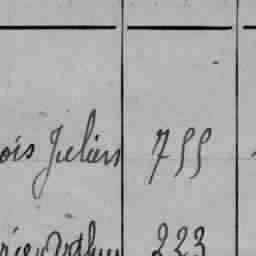 ois Juliens 755
223